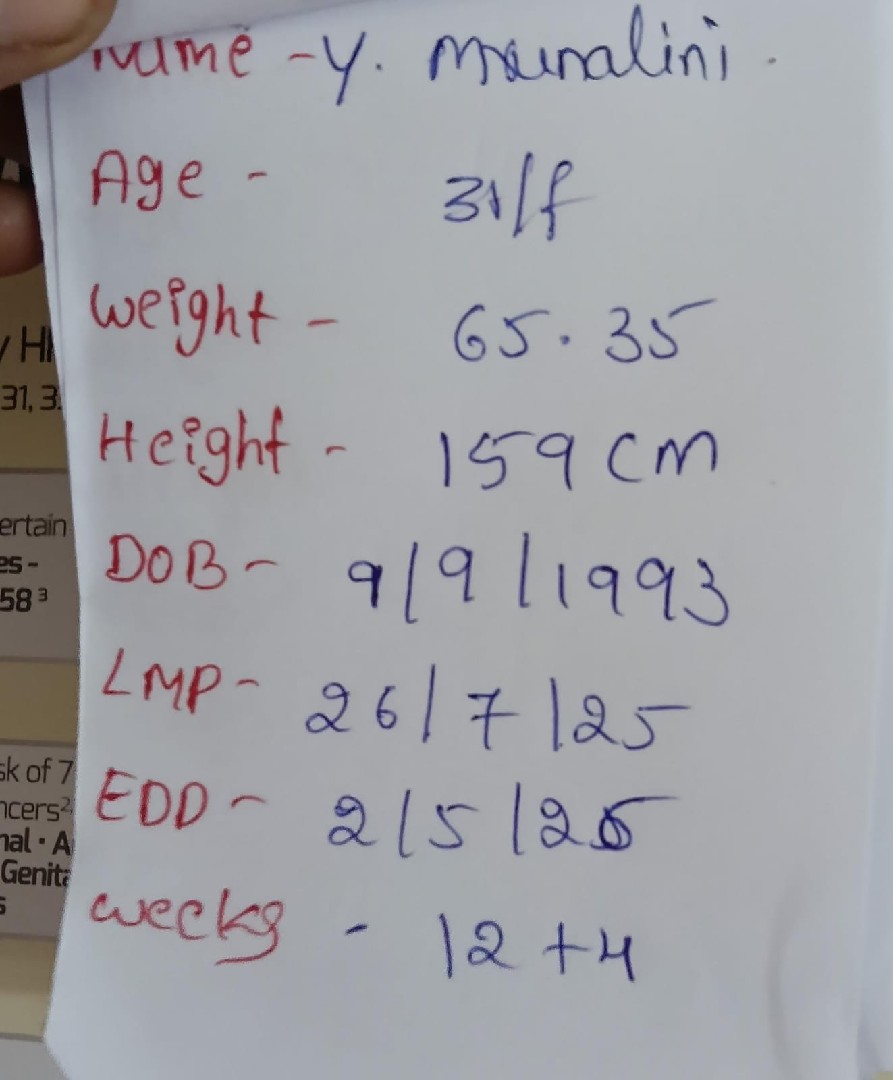 Name - Y. Mrunalini.
Age - 31/f
Weight - 65.35
Height - 159 cm
DOB - 9/9/1993
LMP - 26/7/25
EDD - 2/5/26
weeks - 12+4
31, 3
ertain
es-
58³
sk of 7
ncers²
nal • A
Genita
s